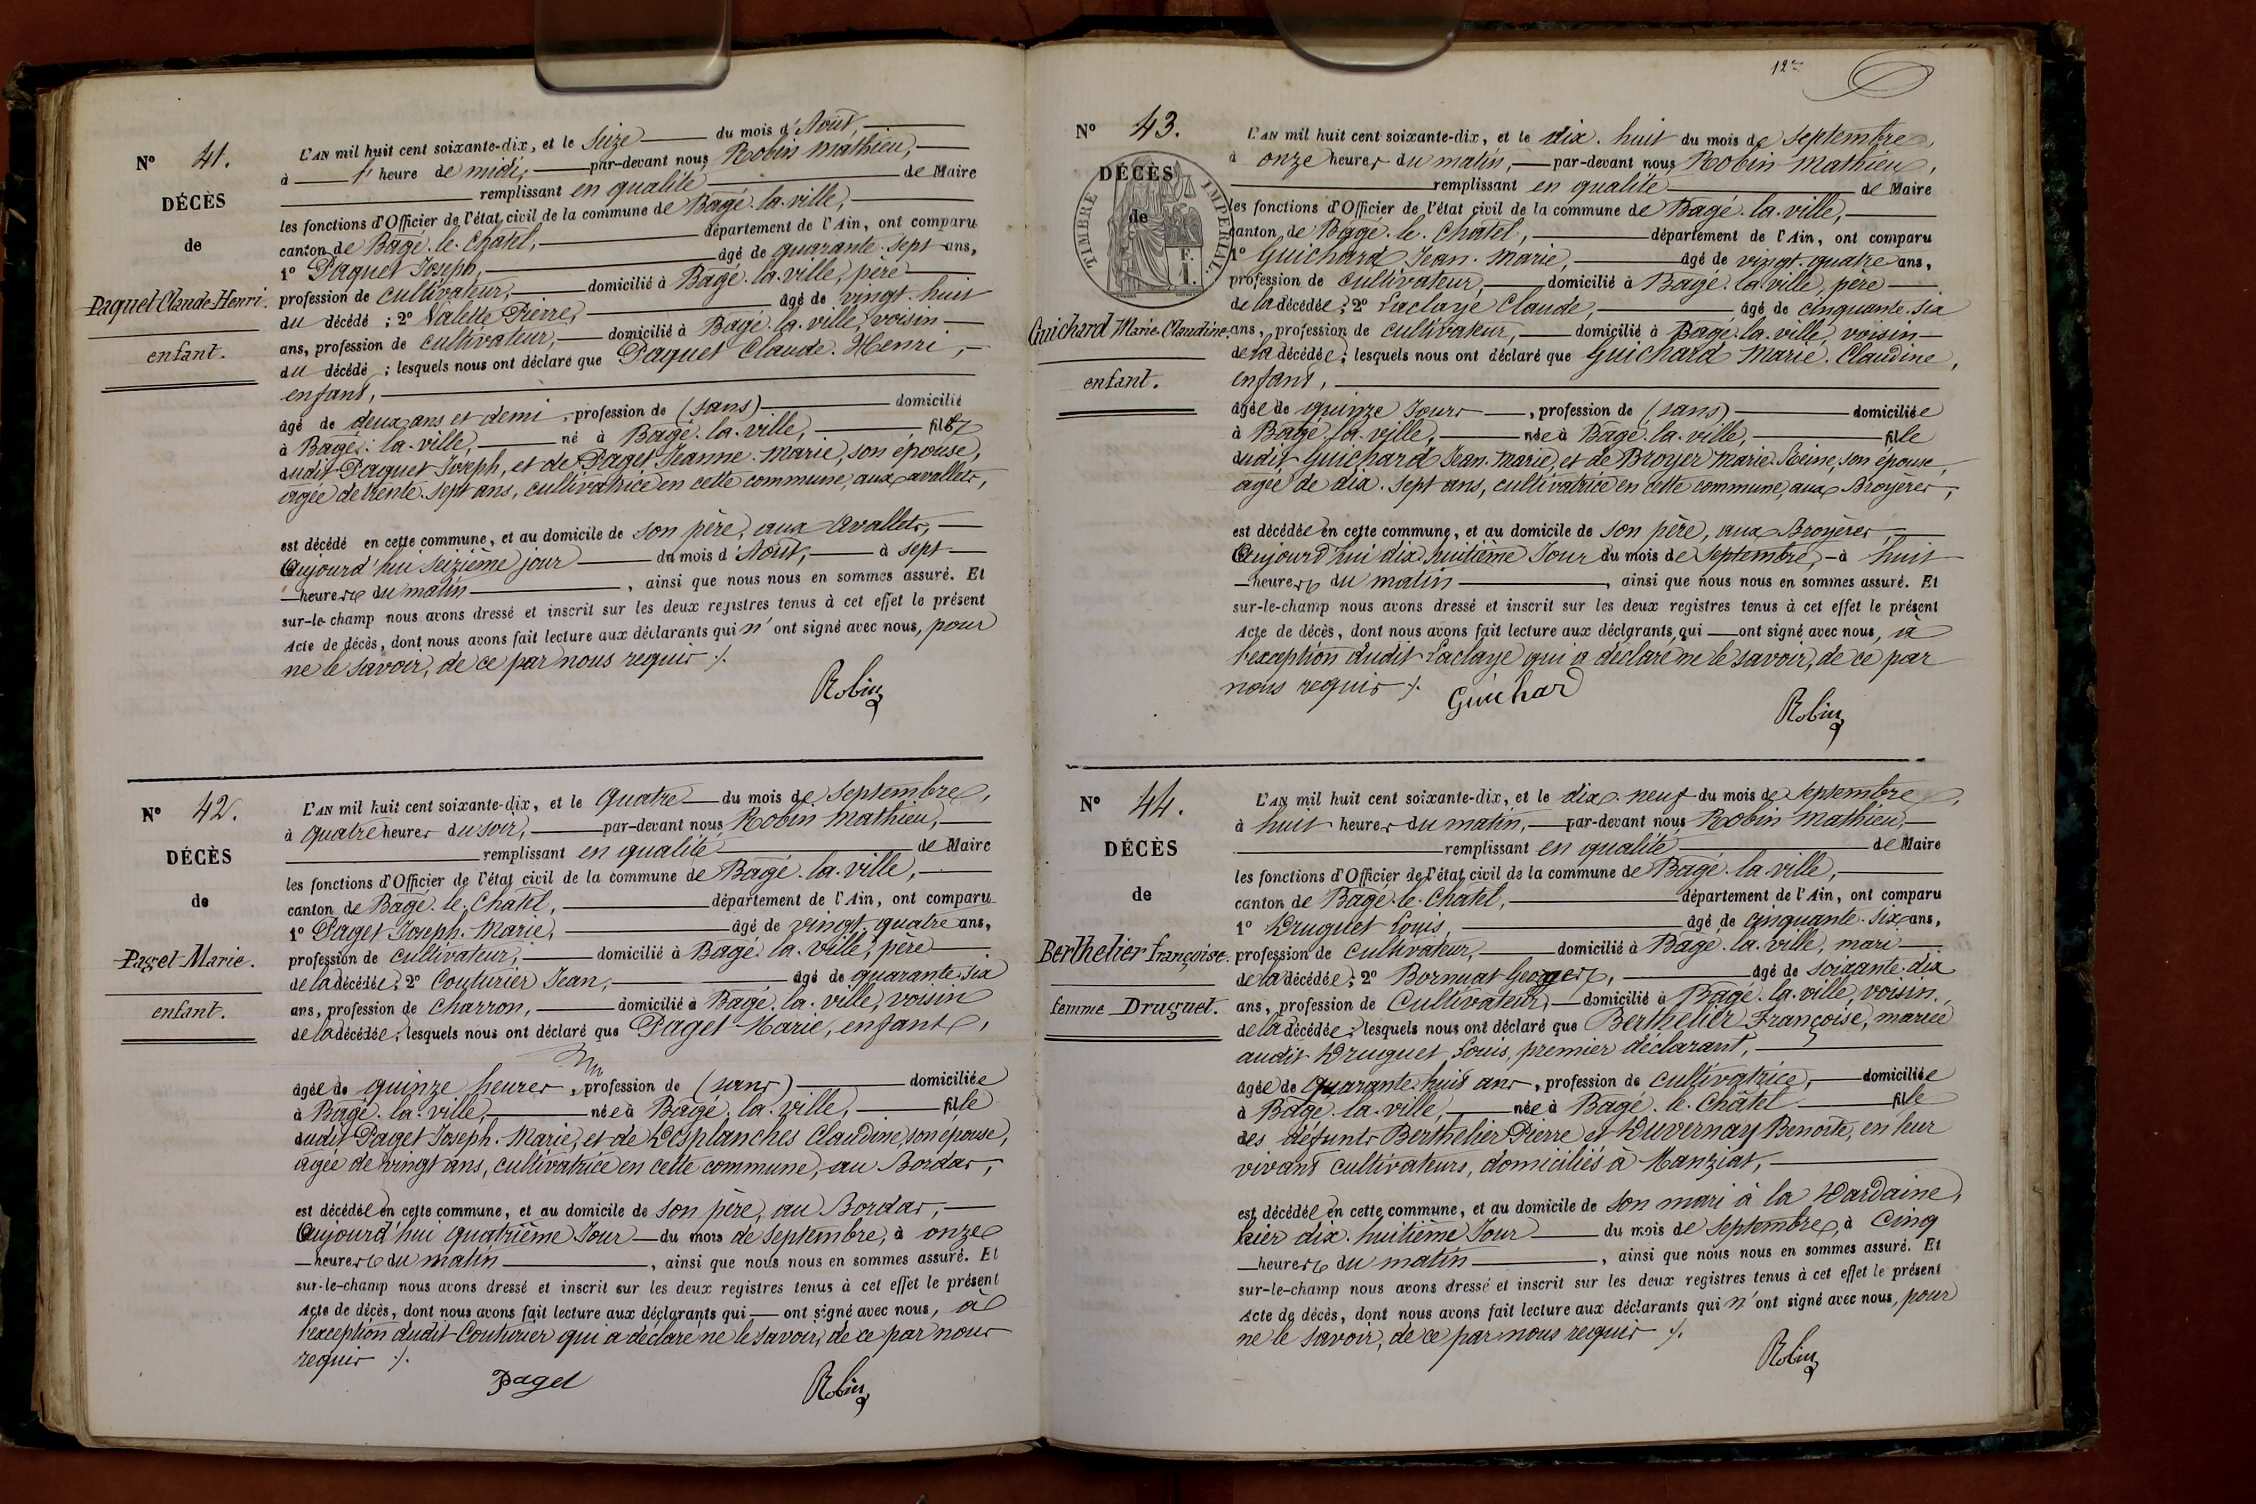 Nº 41.
DÉCÈS
de
Paquet Claude Henri.
enfant.
L'AN mil huit cent soixante-dix, et le Seize du mois d'Août,
à 1 heure de midi, par-devant nous Robin Mathieu,
remplissant en qualité de Maire
les fonctions d'Officier de l'état civil de la commune de Bagé-la-ville,
canton de Bagé-le-Chatel, département de l'Ain, ont comparu
1º Paquet Joseph, âgé de quarante-sept ans,
profession de cultivateur, domicilié à Bagé-la-ville, père
du décédé ; 2º Valette Pierre, âgé de vingt-huit
ans, profession de cultivateur, domicilié à Bagé-la-ville, voisin
du décédé ; lesquels nous ont déclaré que Paquet Claude-Henri,
enfant,
âgé de deux ans et demi, profession de (sans) domicilié
à Bagé-la-ville, né à Bagé-la-ville, fils
dudit Paquet Joseph, et de Paget Jeanne-Marie, son épouse,
âgée de trente-sept ans, cultivatrice en cette commune, aux avallets,
est décédé en cette commune, et au domicile de son père, aux Avallets,
Aujourd'hui seizième jour du mois d'Août, à sept
heures du matin, ainsi que nous nous en sommes assuré. Et
sur-le-champ nous avons dressé et inscrit sur les deux registres tenus à cet effet le présent
Acte de décès, dont nous avons fait lecture aux déclarants qui n'ont signé avec nous, pour
ne le savoir, de ce par nous requis ./.
Robin
Nº 42.
DÉCÈS
de
Paget Marie.
enfant.
L'AN mil huit cent soixante-dix, et le Quatre du mois de Septembre,
à quatre heures du soir, par-devant nous Robin Mathieu,
remplissant en qualité de Maire
les fonctions d'Officier de l'état civil de la commune de Bagé-la-ville,
canton de Bagé-le-Chatel, département de l'Ain, ont comparu
1º Paget Joseph-Marie, âgé de vingt-quatre ans,
profession de cultivateur, domicilié à Bagé-la-ville, père
de la décédée ; 2º Couturier Jean, âgé de quarante-six
ans, profession de charron, domicilié à Bagé-la-ville, voisin
de la décédée ; lesquels nous ont déclaré que Paget Marie, enfant,
âgée de quinze heures, profession de (sans) domiciliée
à Bagé-la-ville, née à Bagé-la-ville, fille
dudit Paget Joseph-Marie, et de Desplanches Claudine, son épouse,
âgée de vingt ans, cultivatrice en cette commune, au Bordas,
est décédée en cette commune, et au domicile de son père, au Bordas,
Aujourd'hui quatrième Jour du mois de Septembre, à onze
heures du matin, ainsi que nous nous en sommes assuré. Et
sur-le-champ nous avons dressé et inscrit sur les deux registres tenus à cet effet le présent
Acte de décès, dont nous avons fait lecture aux déclarants qui ont signé avec nous, à
l'exception dudit Couturier qui a déclaré ne le savoir, de ce par nous
requis ./.
Paget Robin
12e
Nº 43.
DÉCÈS
de
TIMBRE IMPÉRIAL
Guichard Marie-Claudine.
enfant.
L'AN mil huit cent soixante-dix, et le dix-huit du mois de Septembre,
à onze heures du matin, par-devant nous Robin Mathieu,
remplissant en qualité de Maire
les fonctions d'Officier de l'état civil de la commune de Bagé-la-ville,
canton de Bagé-le-Chatel, département de l'Ain, ont comparu
1º Guichard Jean-Marie, âgé de vingt-quatre ans,
profession de cultivateur, domicilié à Bagé-la-ville, père
de la décédée ; 2º Laclaye Claude, âgé de cinquante-six
ans, profession de cultivateur, domicilié à Bagé-la-ville, voisin
de la décédée ; lesquels nous ont déclaré que Guichard Marie-Claudine,
enfant,
âgée de quinze Jours, profession de (sans) domiciliée
à Bagé-la-ville, née à Bagé-la-ville, fille
dudit Guichard Jean-Marie, et de Broyer Marie-Reine, son épouse,
âgée de dix-sept ans, cultivatrice en cette commune, aux Broyères,
est décédée en cette commune, et au domicile de son père, aux Broyères,
Aujourd'hui dix-huitième Jour du mois de Septembre, à huit
heures du matin, ainsi que nous nous en sommes assuré. Et
sur-le-champ nous avons dressé et inscrit sur les deux registres tenus à cet effet le présent
Acte de décès, dont nous avons fait lecture aux déclarants qui ont signé avec nous, à
l'exception dudit Laclaye qui a déclaré ne le savoir, de ce par
nous requis ./.
Guichard Robin
Nº 44.
DÉCÈS
de
Berthelier Françoise.
femme Druguet.
L'AN mil huit cent soixante-dix, et le dix-neuf du mois de Septembre,
à huit heures du matin, par-devant nous Robin Mathieu,
remplissant en qualité de Maire
les fonctions d'Officier de l'état civil de la commune de Bagé-la-ville,
canton de Bagé-le-Chatel, département de l'Ain, ont comparu
1º Druguet Louis, âgé de cinquante-six ans,
profession de cultivateur, domicilié à Bagé-la-ville, mari
de la décédée ; 2º Bornuat Georges, âgé de soixante-dix
ans, profession de Cultivateur, domicilié à Bagé-la-ville, voisin,
de la décédée ; lesquels nous ont déclaré que Berthelier Françoise, mariée
audit Druguet Louis, premier déclarant,
âgée de quarante-huit ans, profession de cultivatrice, domiciliée
à Bagé-la-ville, née à Bagé-le-Châtel fille
des défunts Berthelier Pierre et Duvernay Benoite, en leur
vivant cultivateurs, domiciliés à Manziat,
est décédée en cette commune, et au domicile de son mari à la Dardaine,
hier dix-huitième Jour du mois de Septembre, à cinq
heures du matin, ainsi que nous nous en sommes assuré. Et
sur-le-champ nous avons dressé et inscrit sur les deux registres tenus à cet effet le présent
Acte de décès, dont nous avons fait lecture aux déclarants qui n'ont signé avec nous, pour
ne le savoir, de ce par nous requis ./.
Robin